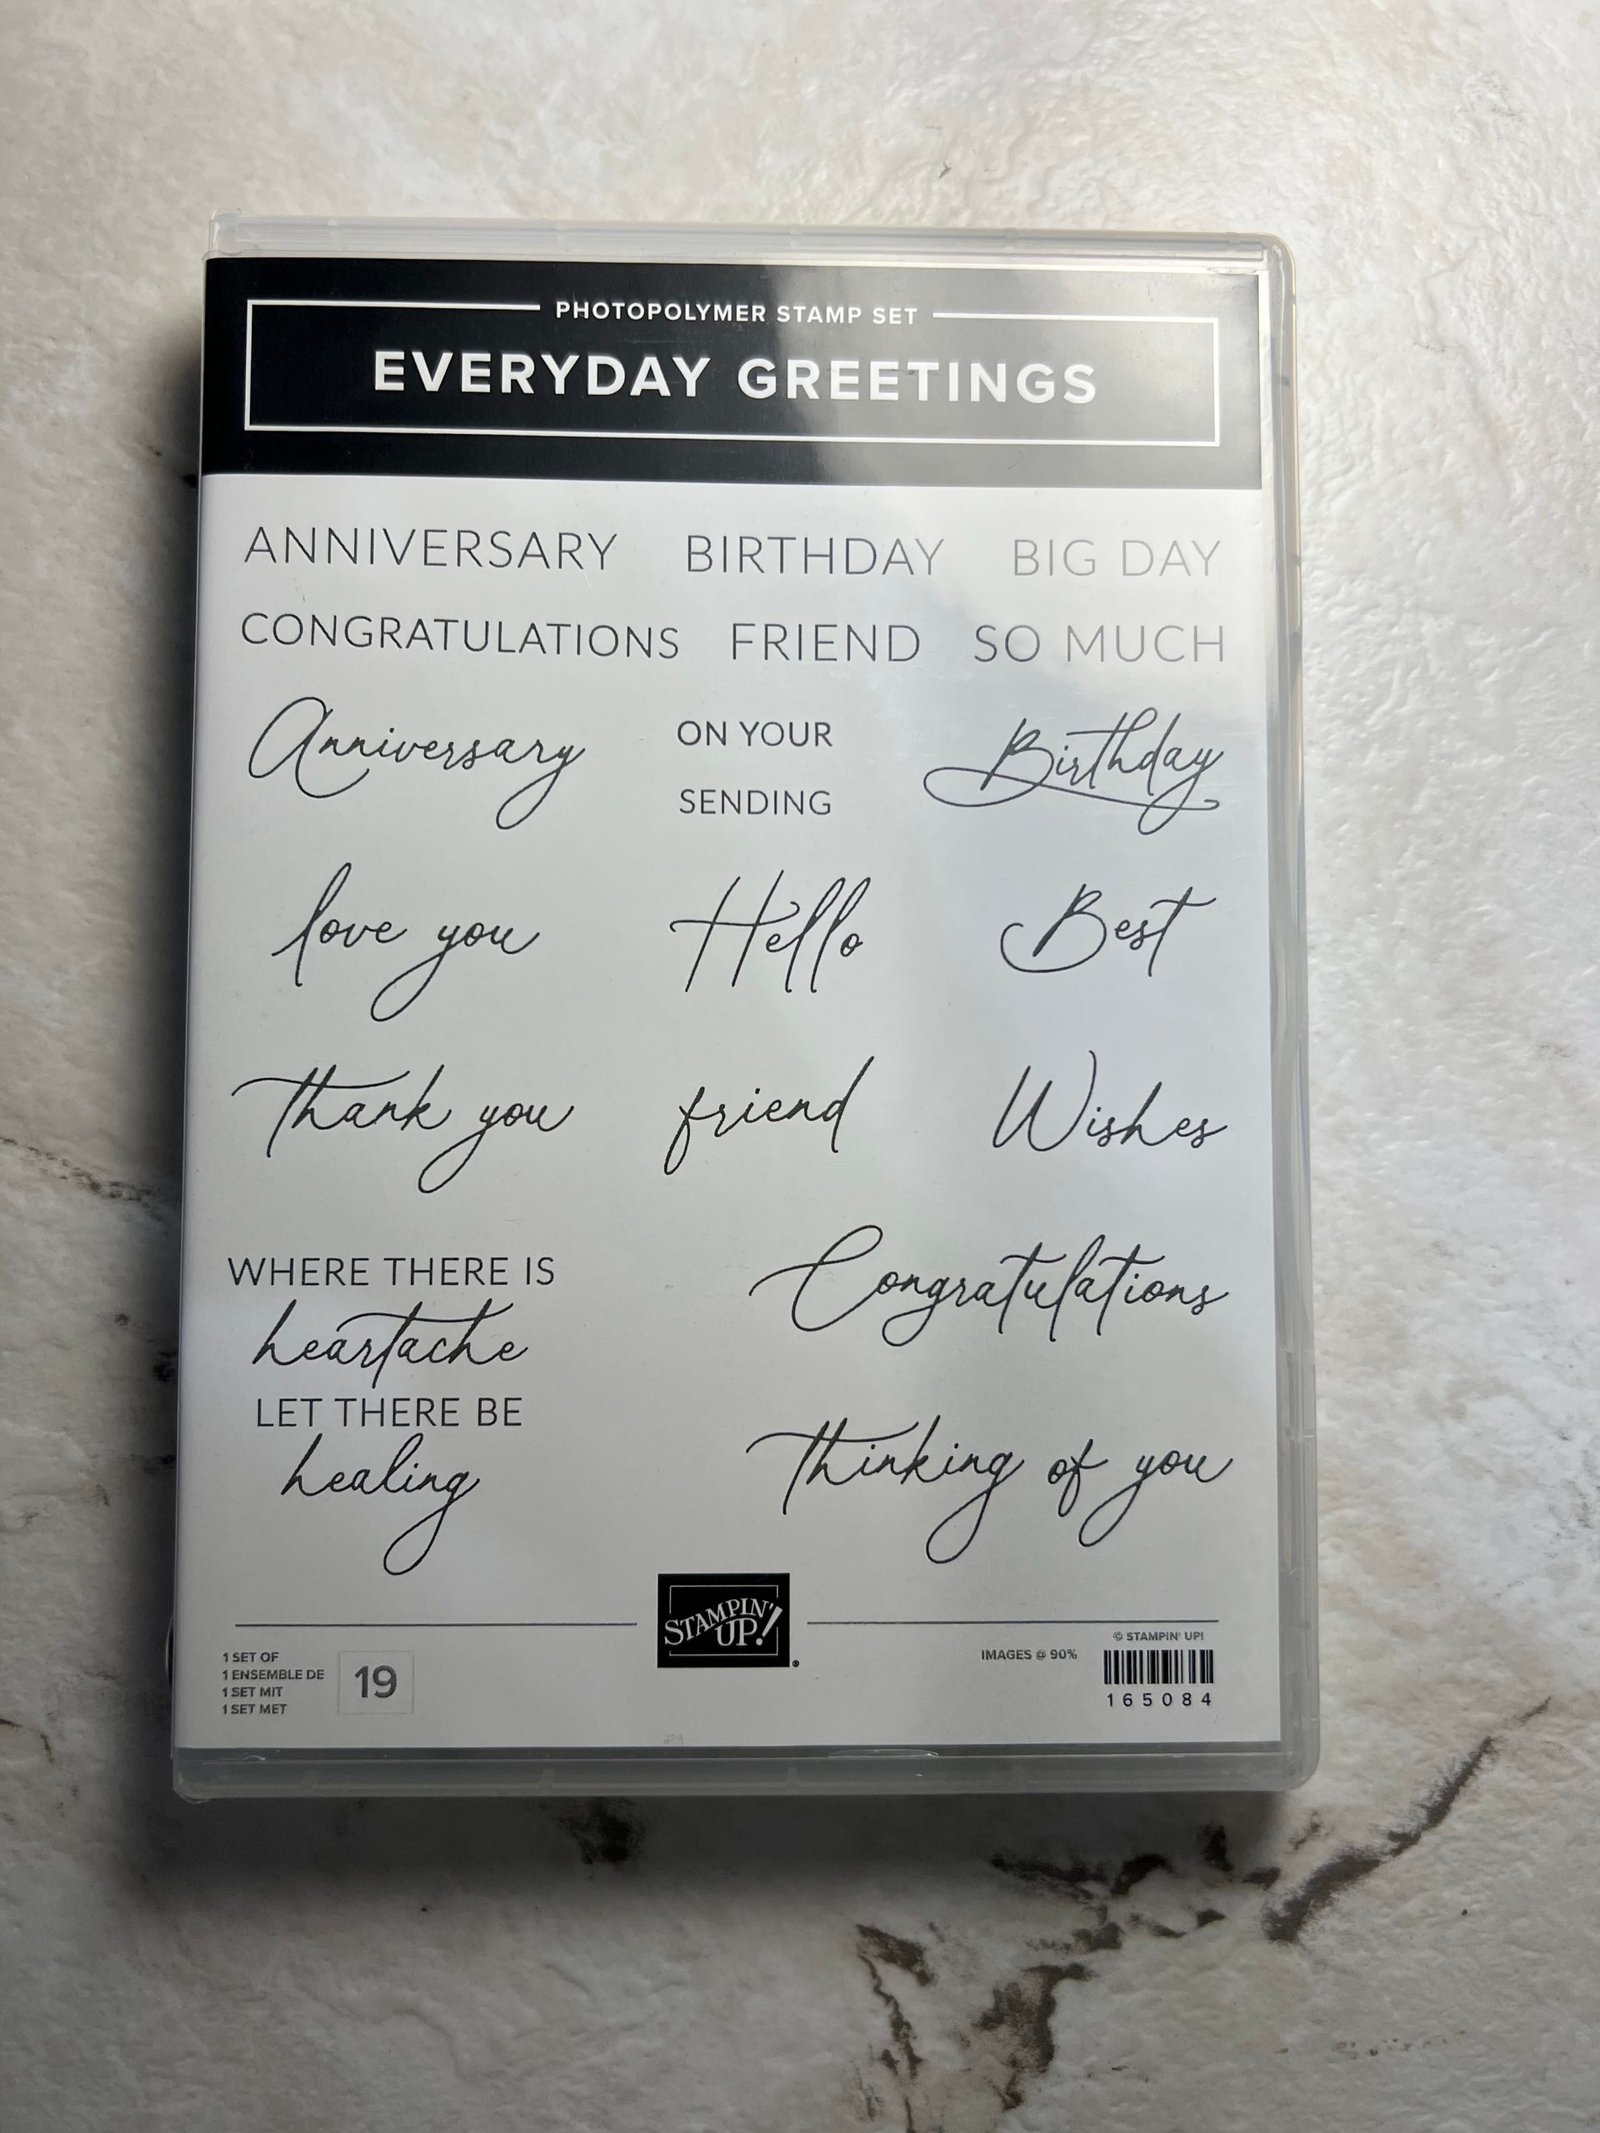 PHOTOPOLYMER STAMP SET
EVERYDAY GREETINGS
ANNIVERSARY BIRTHDAY BIG DAY
CONGRATULATIONS FRIEND SO MUCH
Anniversary
ON YOUR
SENDING
Birthday
love you Hello Best
thank you friend Wishes
WHERE THERE IS
heartache
LET THERE BE
healing
Congratulations
thinking of you
STAMPIN' UP!®
1 SET OF
1 ENSEMBLE DE
1 SET MIT
1 SET MET
19
IMAGES @ 90%
© STAMPIN' UP!
165084